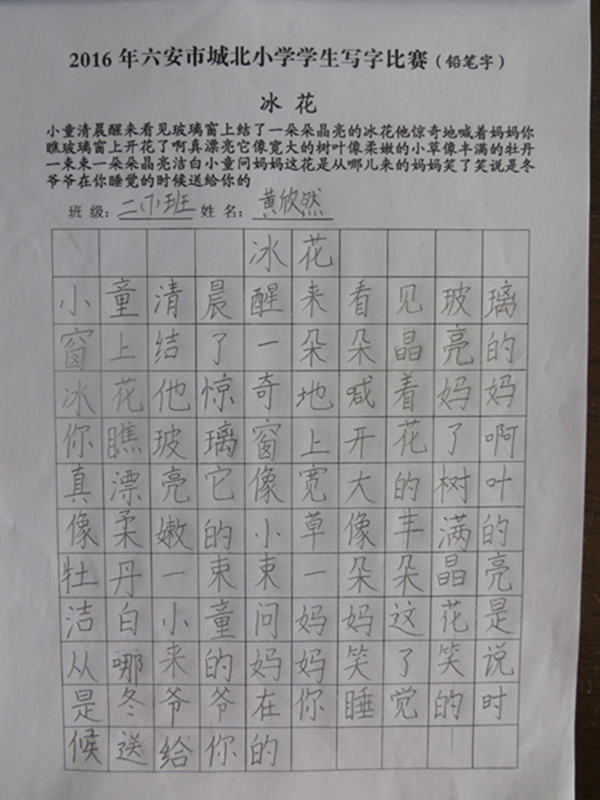 2016年六安市城北小学学生写字比赛（铅笔字）
冰 花
小童清晨醒来看见玻璃窗上结了一朵朵晶亮的冰花他惊奇地喊着妈妈你
瞧玻璃窗上开花了啊真漂亮它像宽大的树叶像柔嫩的小草像丰满的牡丹
一束束一朵朵晶亮洁白小童问妈妈这花是从哪儿来的妈妈笑了笑说是冬
爷爷在你睡觉的时候送给你的
班 级： 二(1)班 姓 名： 黄欣然
冰花
小童清晨醒来看见玻璃
窗上结了一朵朵晶亮的
冰花他惊奇地喊着妈妈
你瞧玻璃窗上开花了啊
真漂亮它像宽大的树叶
像柔嫩的小草像丰满的
牡丹一束束一朵朵晶亮
洁白小童问妈妈这花是
从哪来的妈妈笑了笑说
是冬爷爷在你睡觉的时
候送给你的